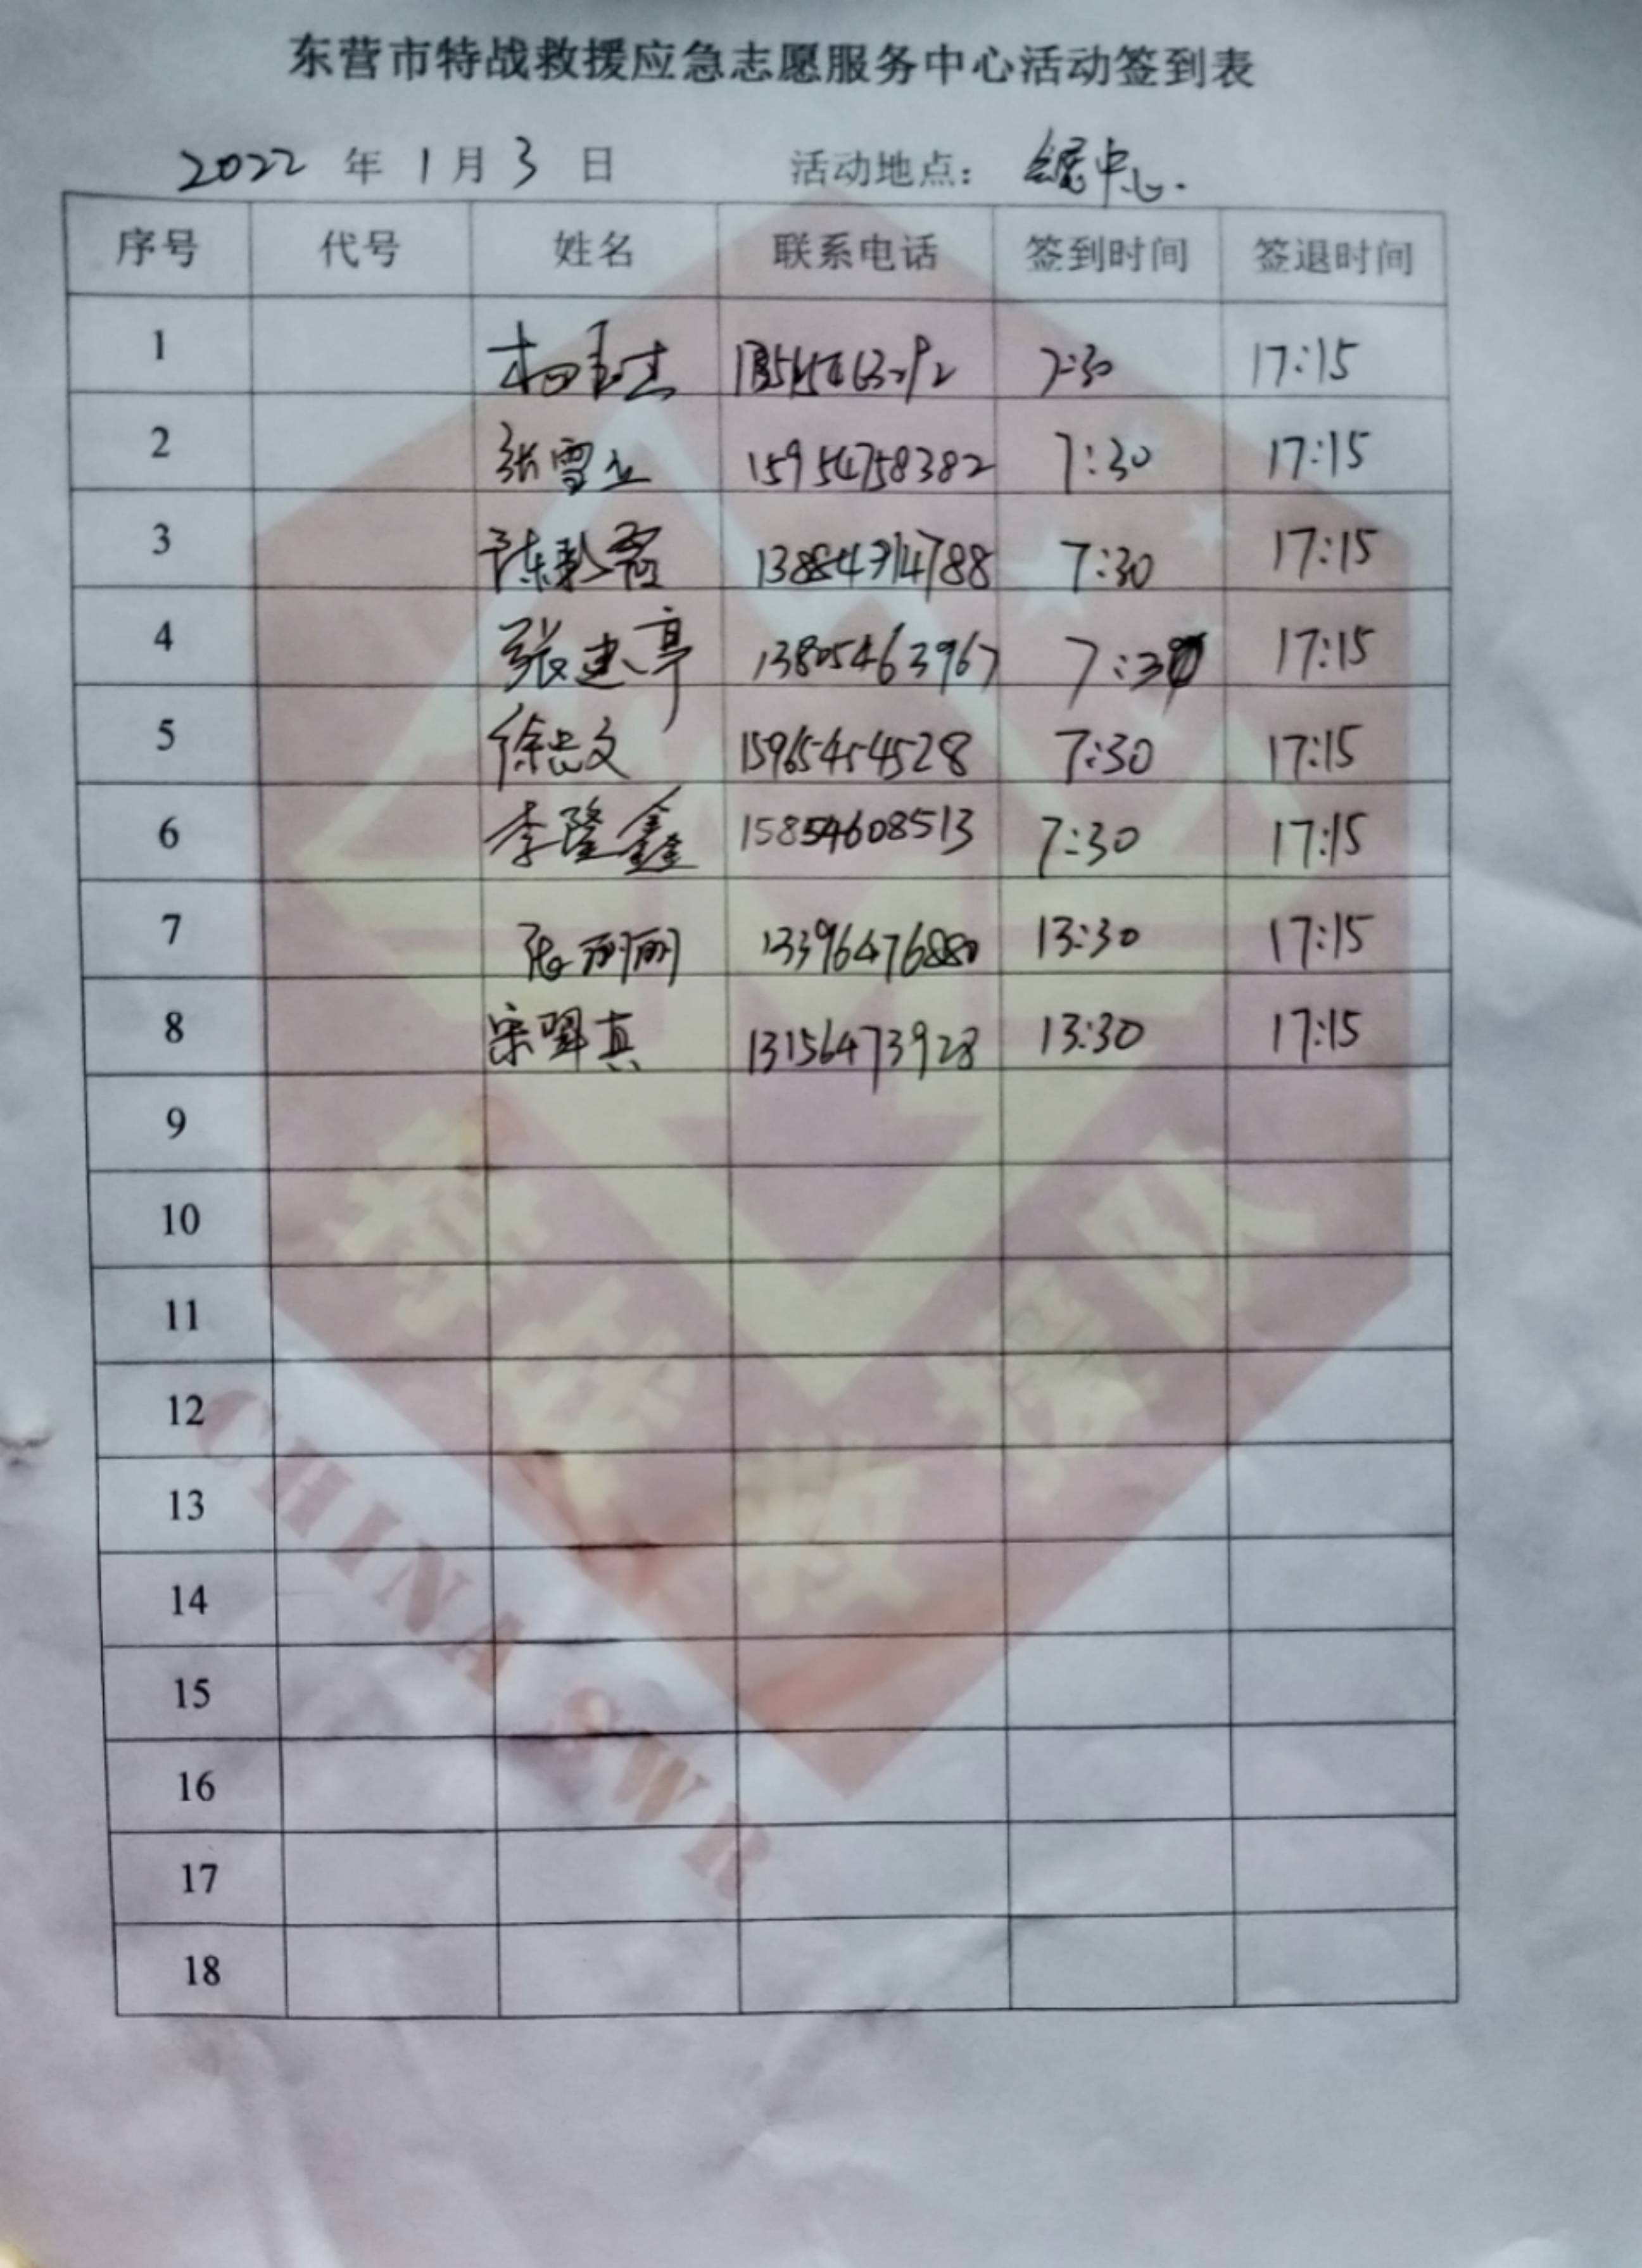 东营市特战救援应急志愿服务中心活动签到表
2022 年 1 月 3 日 活动地点： 会展中心.
序号 代号 姓名 联系电话 签到时间 签退时间
1 7:30 17:15
2 张雪 15954758382 7:30 17:15
3 陈 13884914788 7:30 17:15
4 张建亭 13805463967 7:30 17:15
5 徐忠文 15965454528 7:30 17:15
6 李隆鑫 15854608513 7:30 17:15
7 张丽丽 13396476880 13:30 17:15
8 宋翠真 13156473928 13:30 17:15
9
10
11
12
13
14
15
16
17
18
特战救援队
CHINA SWR